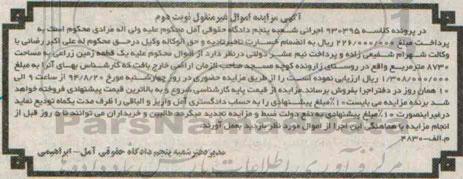 آگهی مزایده اموال غیرمنقول نوبت دوم
در پرونده کلاسه ۹۳۰۳۹۵ اجرائی شعبه پنجم دادگاه حقوقی آمل محکوم علیه ولی اله مرادی محکوم است به
پرداخت مبلغ ۲۲۶/۰۰۰/۰۰۰ ریال به انضمام خسارت تاخیرتادیه و حق الوکاله وکیل درحق محکوم له علی اکبر رضائی با
وکالت شهرام شفیعی زاده و پرداخت نیم عشر دولتی درنظر دارد از اموال محکوم علیه یک قطعه زمین زراعی به مساحت
۸۷۳۰ مترمربع واقع در روستای زارونده کوچه مسجد صاحب الزمان اراضی خارج بافت که کارشناس بهای آنرا به مبلغ
۱/۳۰۸/۰۰۰/۰۰۰ ریال ارزیابی نموده است را از طریق مزایده حضوری در روز چهارشنبه مورخ ۹۴/۸/۲۰ از ساعت ۹ الی
۱۰ همان روز در دفتراجرا بفروش برساند. مزایده از قیمت پایه کارشناسی شروع و به بالاترین قیمت پیشنهادی فروخته خواهد
شد برنده مزایده می بایست ۱۰٪ مبلغ پیشنهادی را به حساب دادگستری آمل واریز و الباقی را ظرف مدت یکماه تودیع نماید
درغیراینصورت ۱۰٪ مبلغ پیشنهادی به نفع دولت ضبط و مزایده تجدید میگردد طالبین و خریداران می توانند تا ۵ روز قبل از
انجام مزایده با هماهنگی این اجرا از اموال مورد نظر بازدید بعمل آورند.
م.الف-۴۸۳۰
مدیر دفتر شعبه پنجم دادگاه حقوقی آمل - ابراهیمی